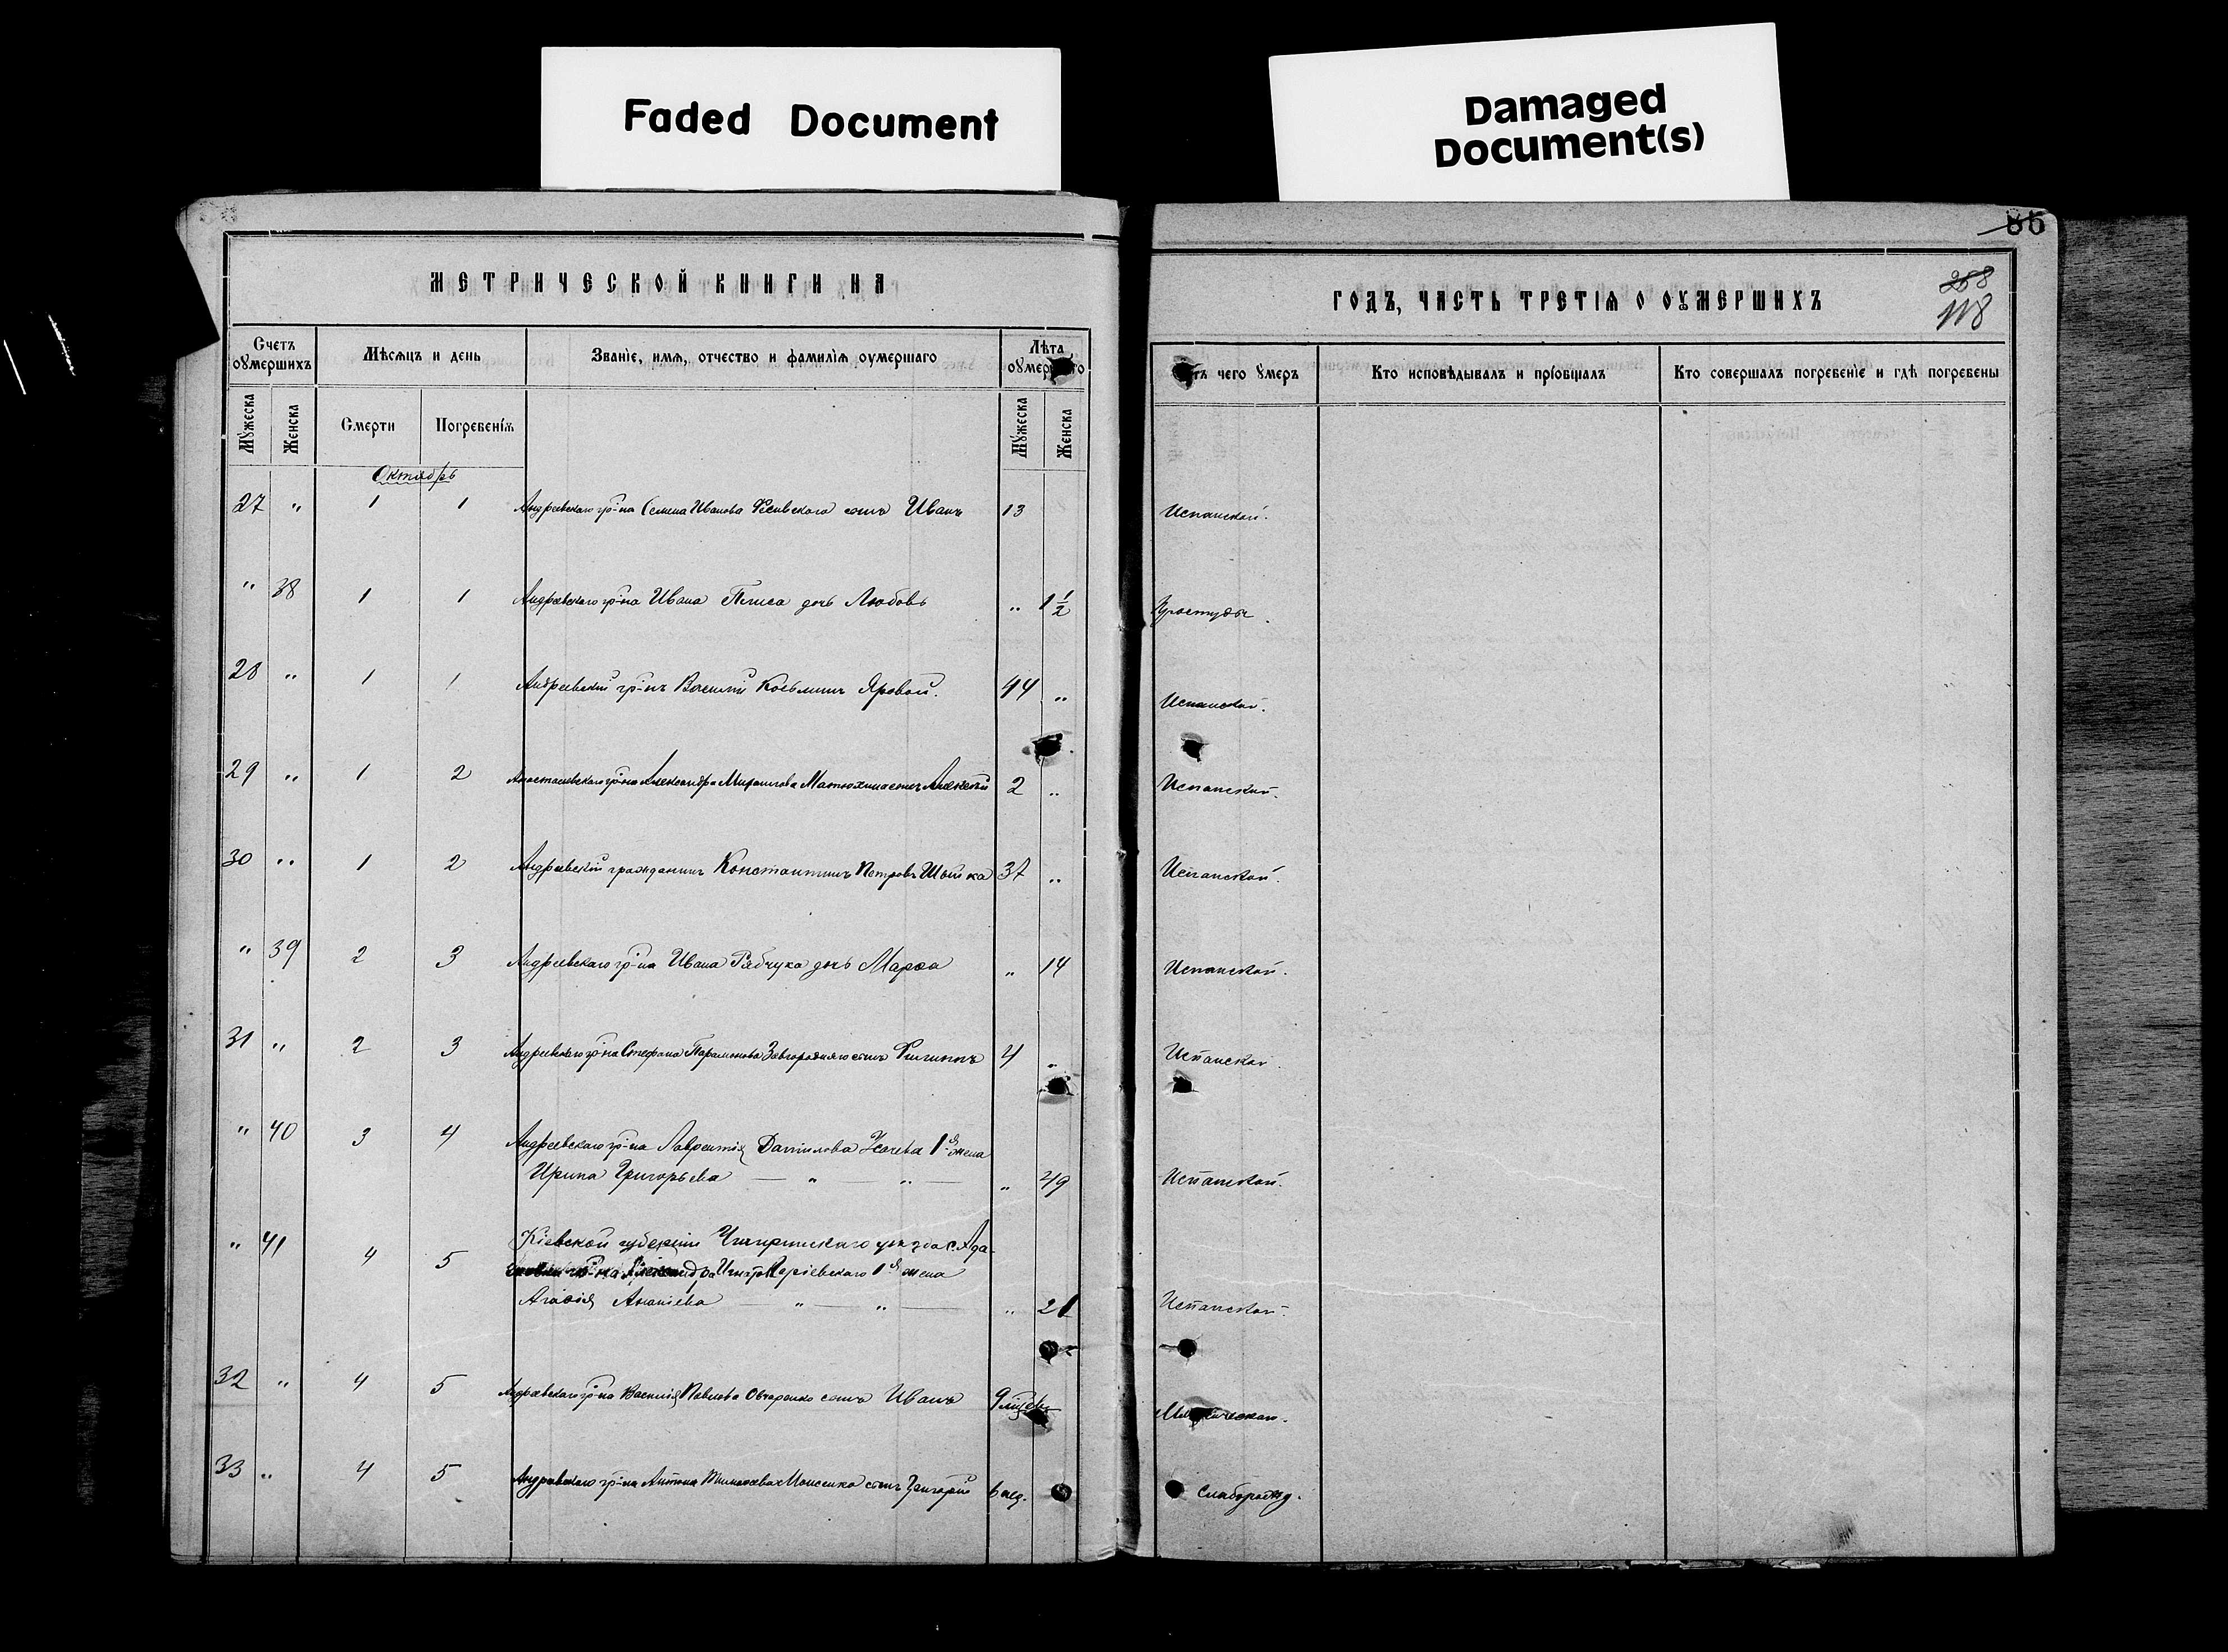 Faded Document
Damaged
Document(s)
86
МЕТРИЧЕСКОЙ КНИГИ НА
ГОДЪ, ЧАСТЬ ТРЕТІѦ О ОУМЕРШИХЪ
268
118
Счетъ оумершихъ
Мѣсѧцъ и день
Званіе, имѧ, отчество и фамиліѧ оумершаго
Лѣта
Мужеска
Женска
Смерти
Погребеніѧ
Мужеска
Женска
чего умеръ
Кто исповѣдывалъ и пріобщалъ
Кто совершалъ погребеніе и гдѣ погребены
Октябрь
27 " 1 1 Андреевскаго гр-на Семена Иванова сынъ Иванъ 13 Испанской.
" 38 1 1 Андреевскаго гр-на Ивана дочь Любовь " 1 1/2 Простуды.
28 " 1 1 Андреевскій гр-нъ Василій Козьминъ Яровой. 44 " Испанской.
29 " 1 2 гр-на Александра Матюхина сынъ Алексѣй 2 " Испанской.
30 " 1 2 Андреевскій гражданинъ Константинъ Петровъ 37 " Испанской.
" 39 2 3 Андреевскаго гр-на Ивана Рябчука дочь Марѳа " 14 Испанской.
31 " 2 3 Андреевскаго гр-на Стефана Парамонова Завгородняго сынъ Филиппъ 4 " Испанской.
" 40 3 4 Андреевскаго гр-на Лаврентія Данилова 1й жена
Ирина Григорьева — " — " — " 49 Испанской.
" 41 4 5 Кіевской губерніи Чигиринскаго уѣзда с. Ада-
гр-на Александра 1й жена
Агаѳія Ананіева — " — " — " 21 Испанской.
32 " 4 5 Андреевскаго гр-на Василія Павлова Овчаренко сынъ Иванъ 9
33 " 4 5 Андреевскаго гр-на Антона Моисеенко сынъ Григорій 6 нед. Слаборожд.